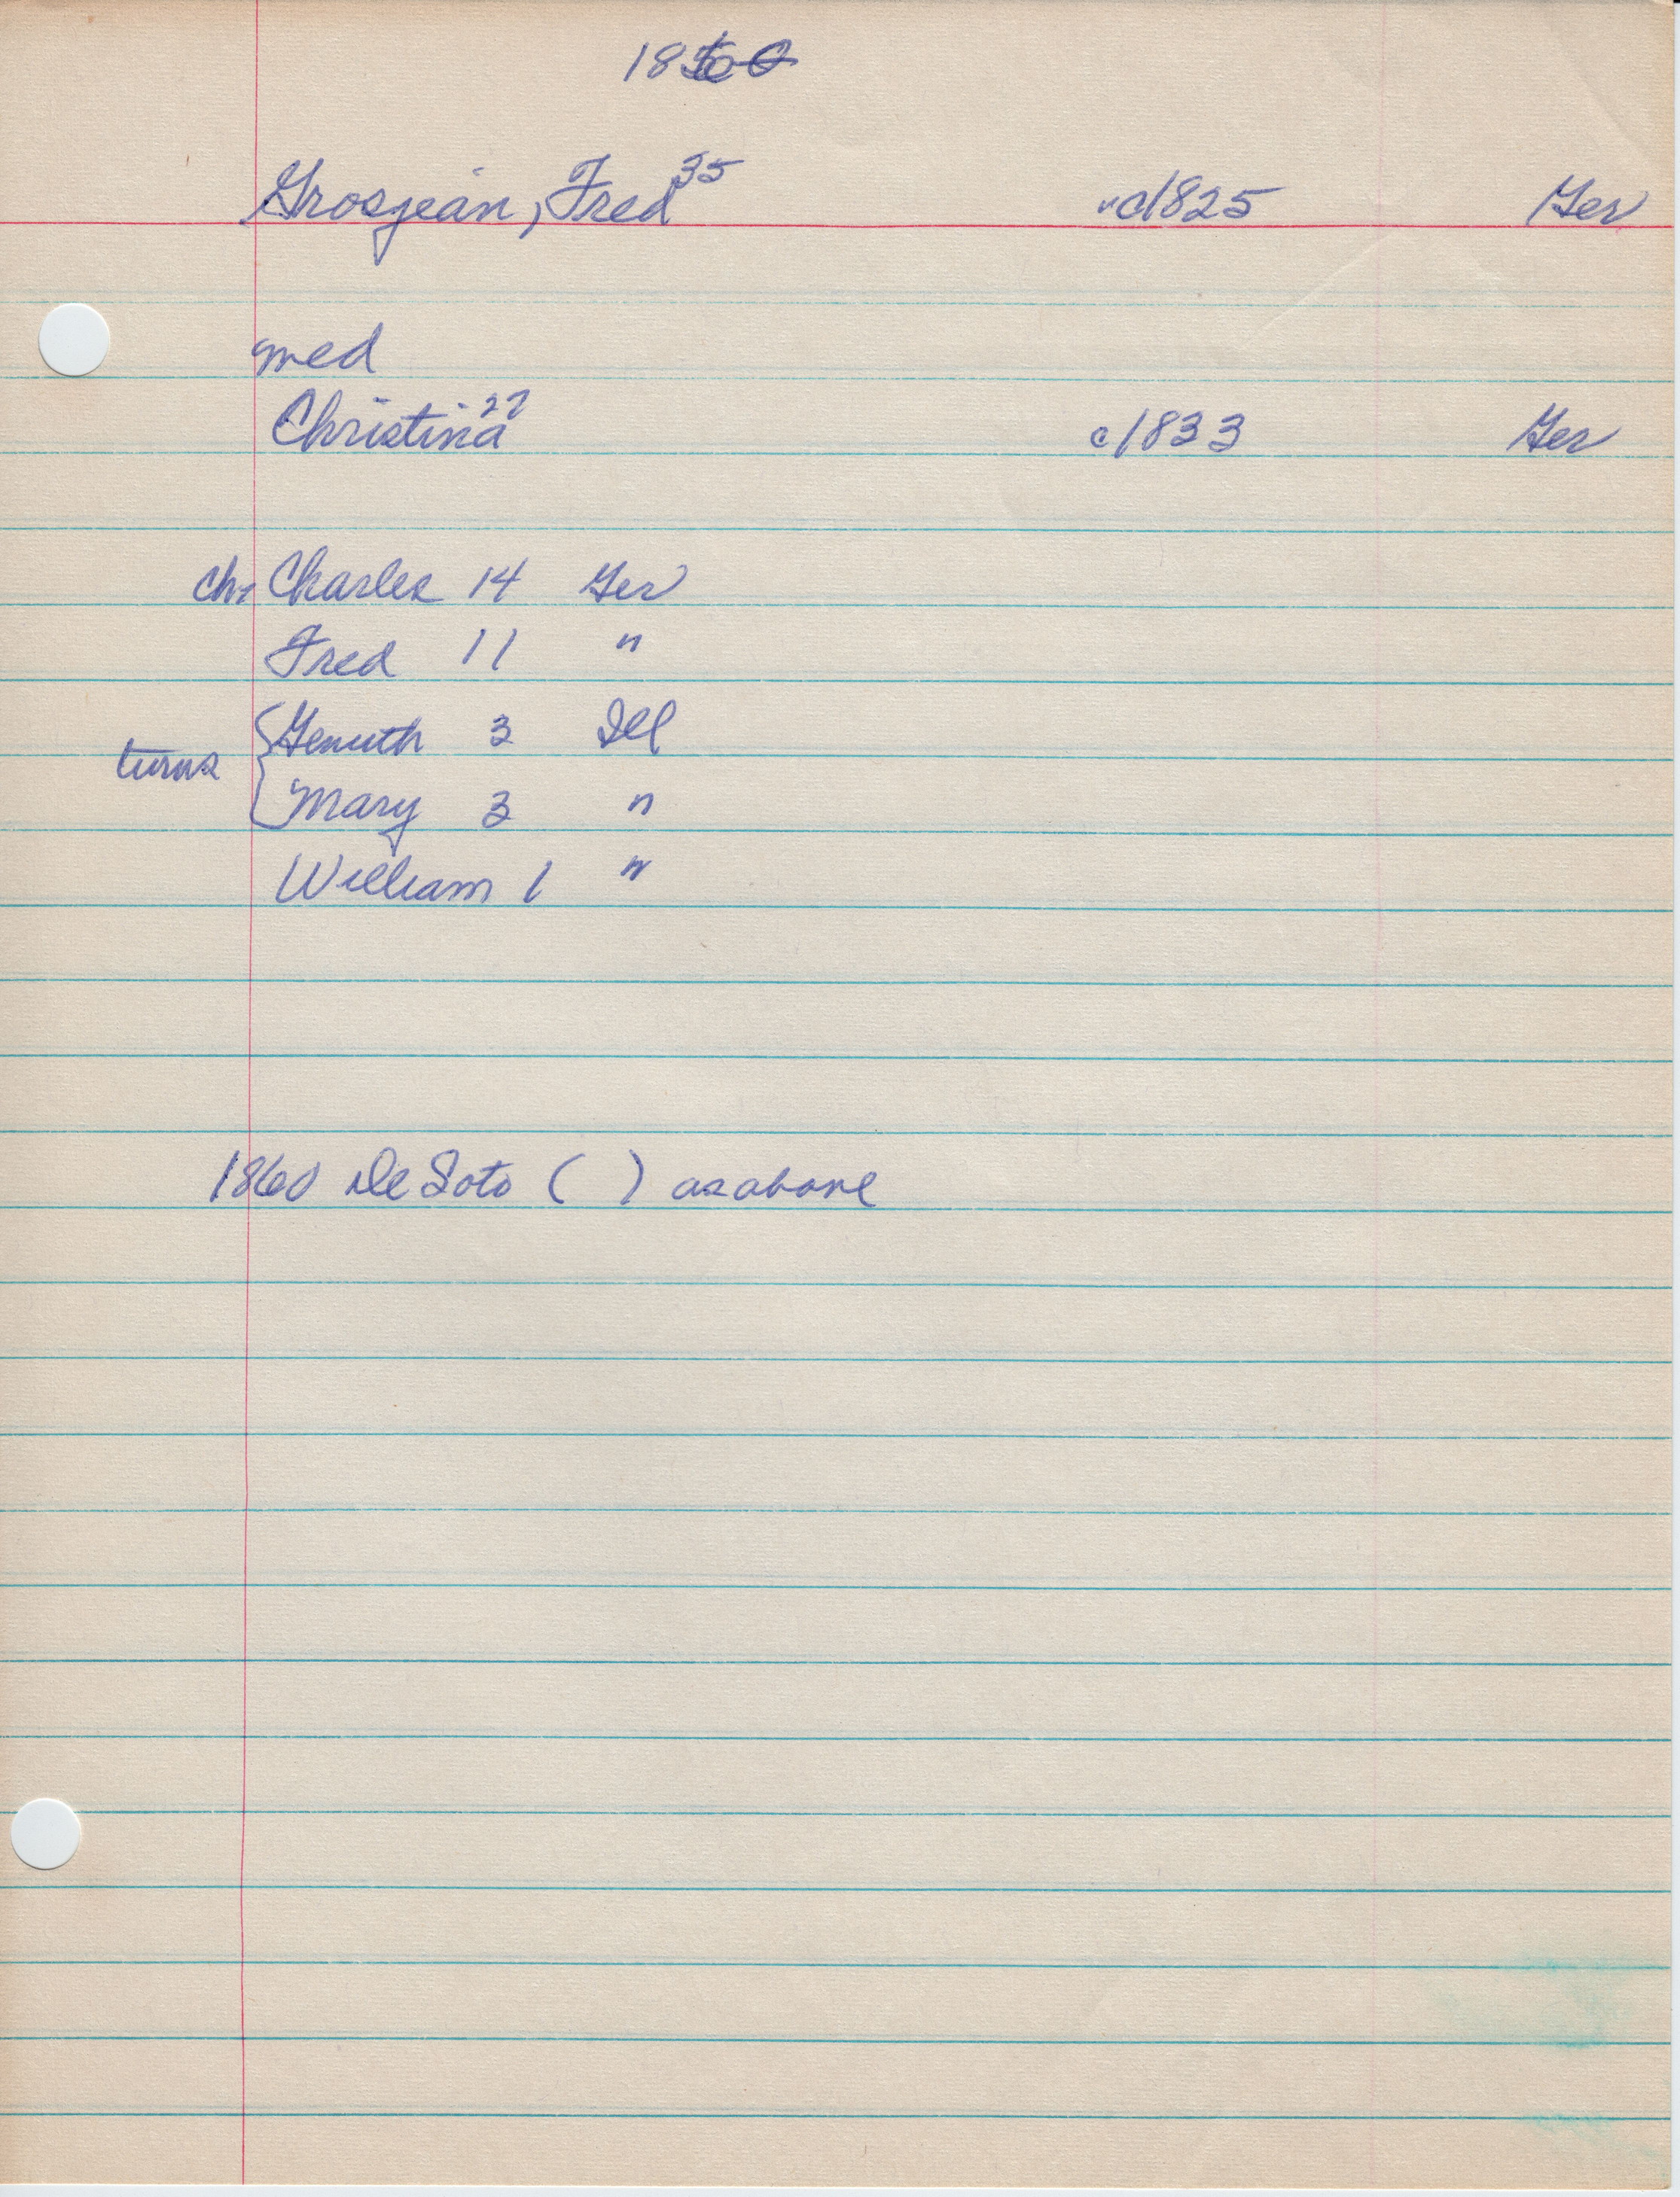 1860
Grosjean, Fred 35 c1825 Ger
med
Christina 27 c1833 Ger
ch. Charles 14 Ger
Fred 11 "
Genuth 3 Ill
twins
Mary 3 "
William 1 "
1860 De Soto ( ) as above